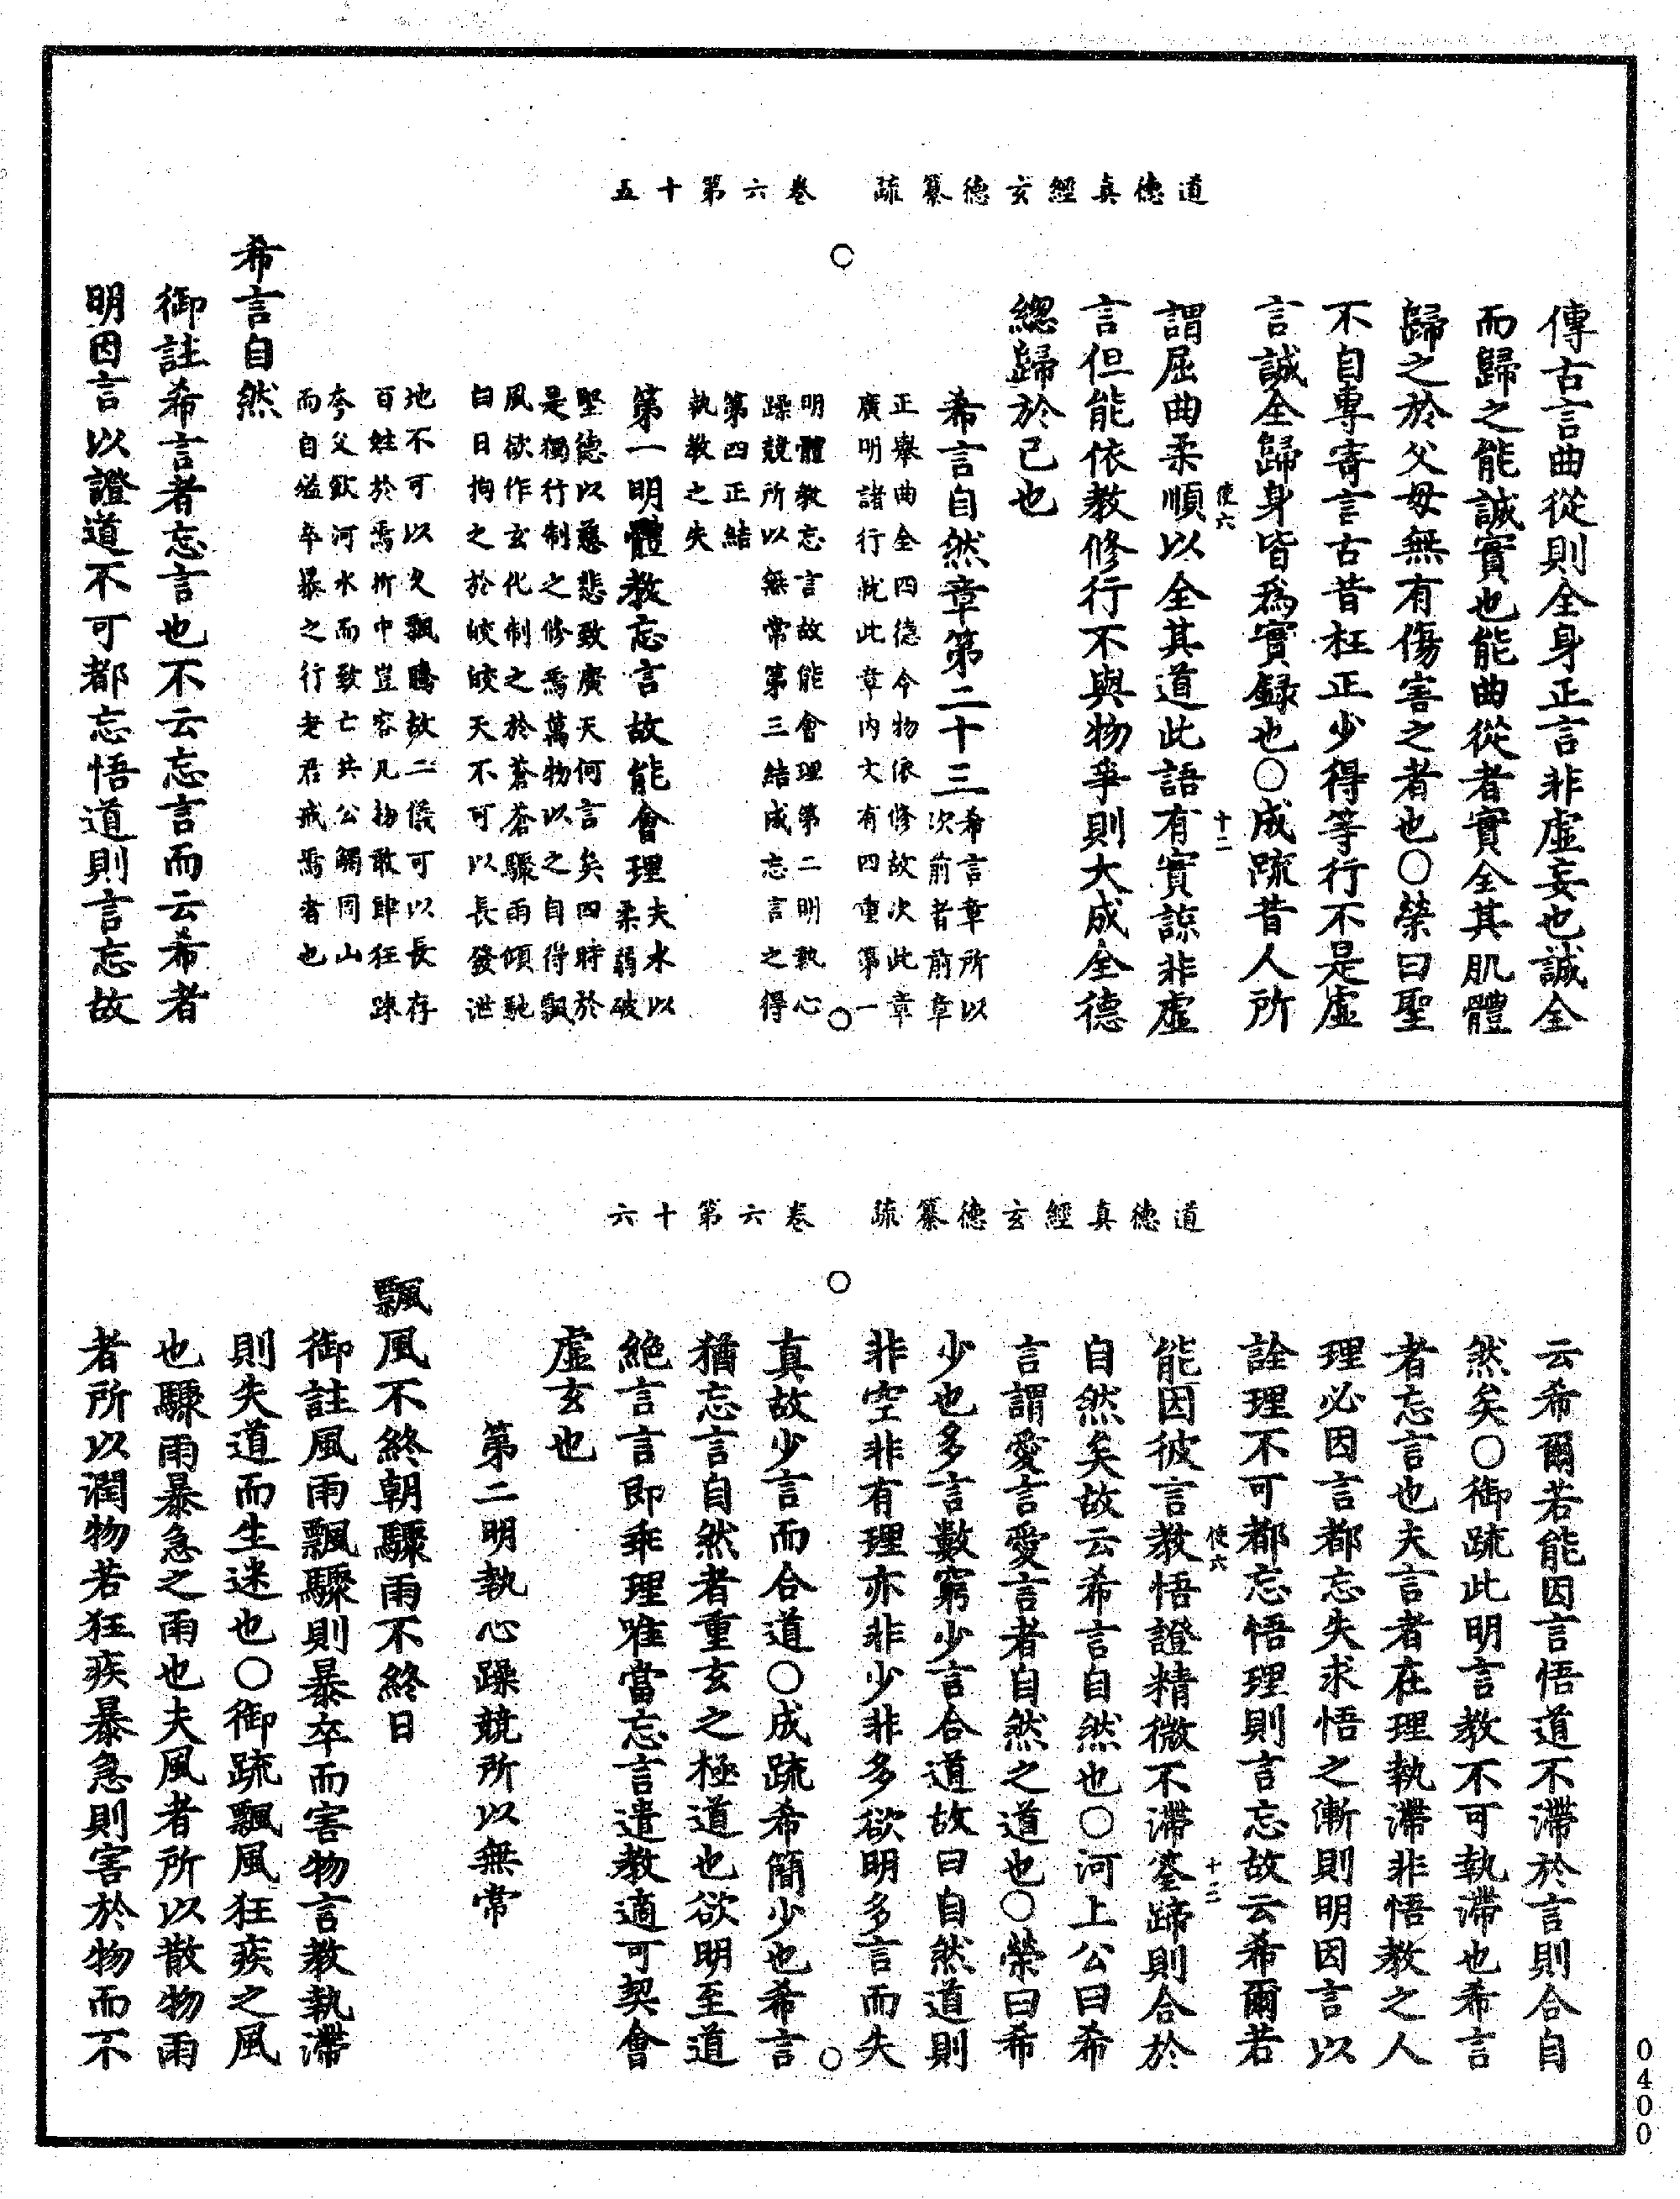 道德真經玄德纂疏　卷六第十五
傳古言曲從則全身正言非虛妄也誠全
而歸之能誠實也能曲從者實全其肌體
歸之於父母無有傷害之者也○榮曰聖
不自專寄言古昔枉正少得等行不是虛
言誠全歸身皆為實録也○成疏昔人所
謂屈曲柔順以全其道此語有實諒非虛
使六　十二
言但能依教修行不與物爭則大成全德
總歸於己也
希言自然章第二十三
希言章所以
次前者前章
正舉曲全四德今物依修故次此章
廣明諸行就此章內文有四重第一
明體教忘言故能會理第二明執心
躁競所以無常第三結成忘言之得
第四正結
執教之失
第一明體教忘言故能會理
夫水以
柔弱破
堅德以慈悲致廣天何言矣四時於
是獨行制之修焉萬物以之自得飄
風欲作玄化制之於蒼蒼驟雨傾馳
白日拘之於皎皎天不可以長發泄
地不可以久飄騰故二儀可以長存
百姓於焉折中豈容凡物敢肆狂踈
夸父飲河水而致亡共公觸同山
而自滋卒暴之行老君戒焉者也
希言自然
御註希言者忘言也不云忘言而云希者
明因言以證道不可都忘悟道則言忘故
道德真經玄德纂疏　卷六第十六
云希爾若能因言悟道不滯於言則合自
然矣○御疏此明言教不可執滯也希言
者忘言也夫言者在理執滯非悟教之人
理必因言都忘失求悟之漸則明因言以
詮理不可都忘悟理則言忘故云希爾若
能因彼言教悟證精微不滯筌蹄則合於
使六　十二
自然矣故云希言自然也○河上公曰希
言謂愛言愛言者自然之道也○榮曰希
少也多言數窮少言合道故曰自然道則
非空非有理亦非少非多欲明多言而失
真故少言而合道○成疏希簡少也希言
猶忘言自然者重玄之極道也欲明至道
絕言言即乖理唯當忘言遣教適可契會
虛玄也
第二明執心躁競所以無常
飄風不終朝驟雨不終日
御註風雨飄驟則暴卒而害物言教執滯
則失道而生迷也○御疏飄風狂疾之風
也驟雨暴急之雨也夫風者所以散物雨
者所以潤物若狂疾暴急則害於物而不
0400